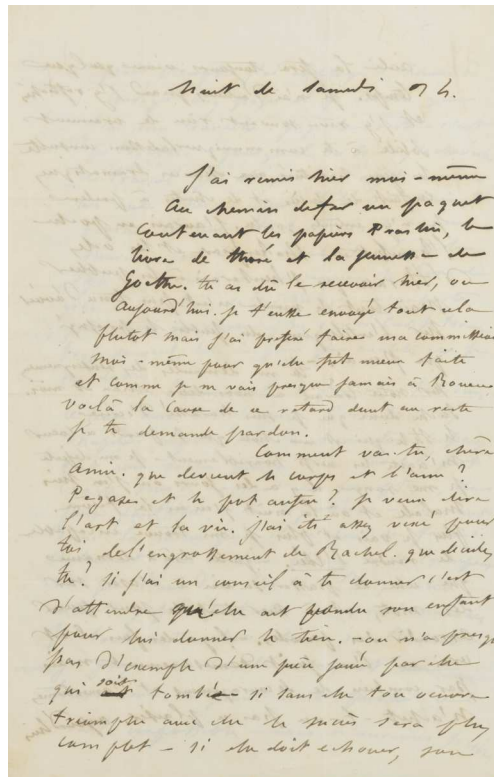 Nuit de samedi 
J'ai remis hier moi-même
au chemin de fer un paquet
contenant les papiers Praslin, le
livre de Thoré et la jeunesse de
Goethe. tu as dû le recevoir hier, ou
aujourd'hui. je t'eusse envoyé tout cela
plutot mais j'ai préféré faire ma commission
moi-même pour qu'elle fût mieux faite
et comme je ne vais presque jamais à Rouen
voilà la cause de ce retard dont au reste
je te demande pardon.
Comment vas-tu, chère
Amie. que devient le corps et l'âme?
Pegase et le pot au feu? je veux dire
l'art et la vie. j'ai été assez vexé pour
toi de l'engrossement de Rachel. que décides
tu? si j'ai un conseil à te donner c'est
d'attendre qu'elle ait pondu son enfant
pour lui donner le tien. - on n'a presque
pas d'exemple d'une pièce jouée par elle
qui soit tombée - si sans elle ton oeuvre
triomphe avec elle le succès sera plus
complet - si elle doit echouer, son